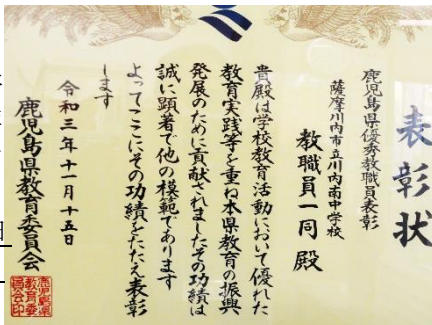 表彰状
鹿児島県優秀教職員表彰
薩摩川内市立川内南中学校
教職員一同殿
貴殿は学校教育活動において優れた
教育実践等を重ね本県教育の振興
発展のために貢献されましたその功績は
誠に顕著で他の模範であります
よってここにその功績をたたえ表彰
します
令和三年十一月十五日
鹿児島県教育委員会
鹿児島県
教育委
員会印